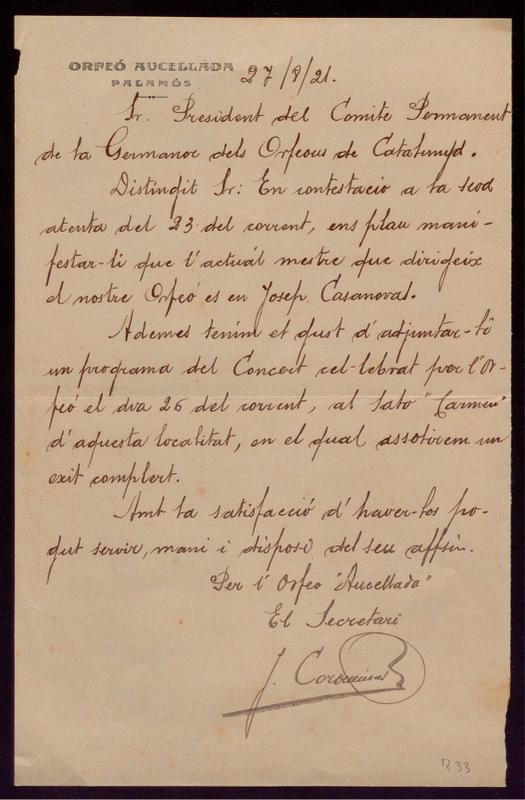 ORFEÓ AUCELLADA
PALAMÓS
27/8/21.
Sr. President del Comitè Permanent
de la Germanor dels Orfeons de Catalunya.
Distingit Sr: En contestació a la seva
atenta del 23 del corrent, ens plau mani-
festar-li que l'actuál mestre que dirigeix
el nostre Orfeó es en Josep Casanovas.
Ademes tenim et gust d'adjuntar-lo
un programa del Concert cel-lebrat per l'Or-
feó el dia 26 del corrent, al Saló "Carmen"
d'aquesta localitat, en el qual assolirem un
exit complert.
Amt la satisfacció d'haver-los po-
gut servir, mani i disposi del seu affsm.
Per l'Orfeo "Aucellada"
El Secretari
J. Corominas
R33